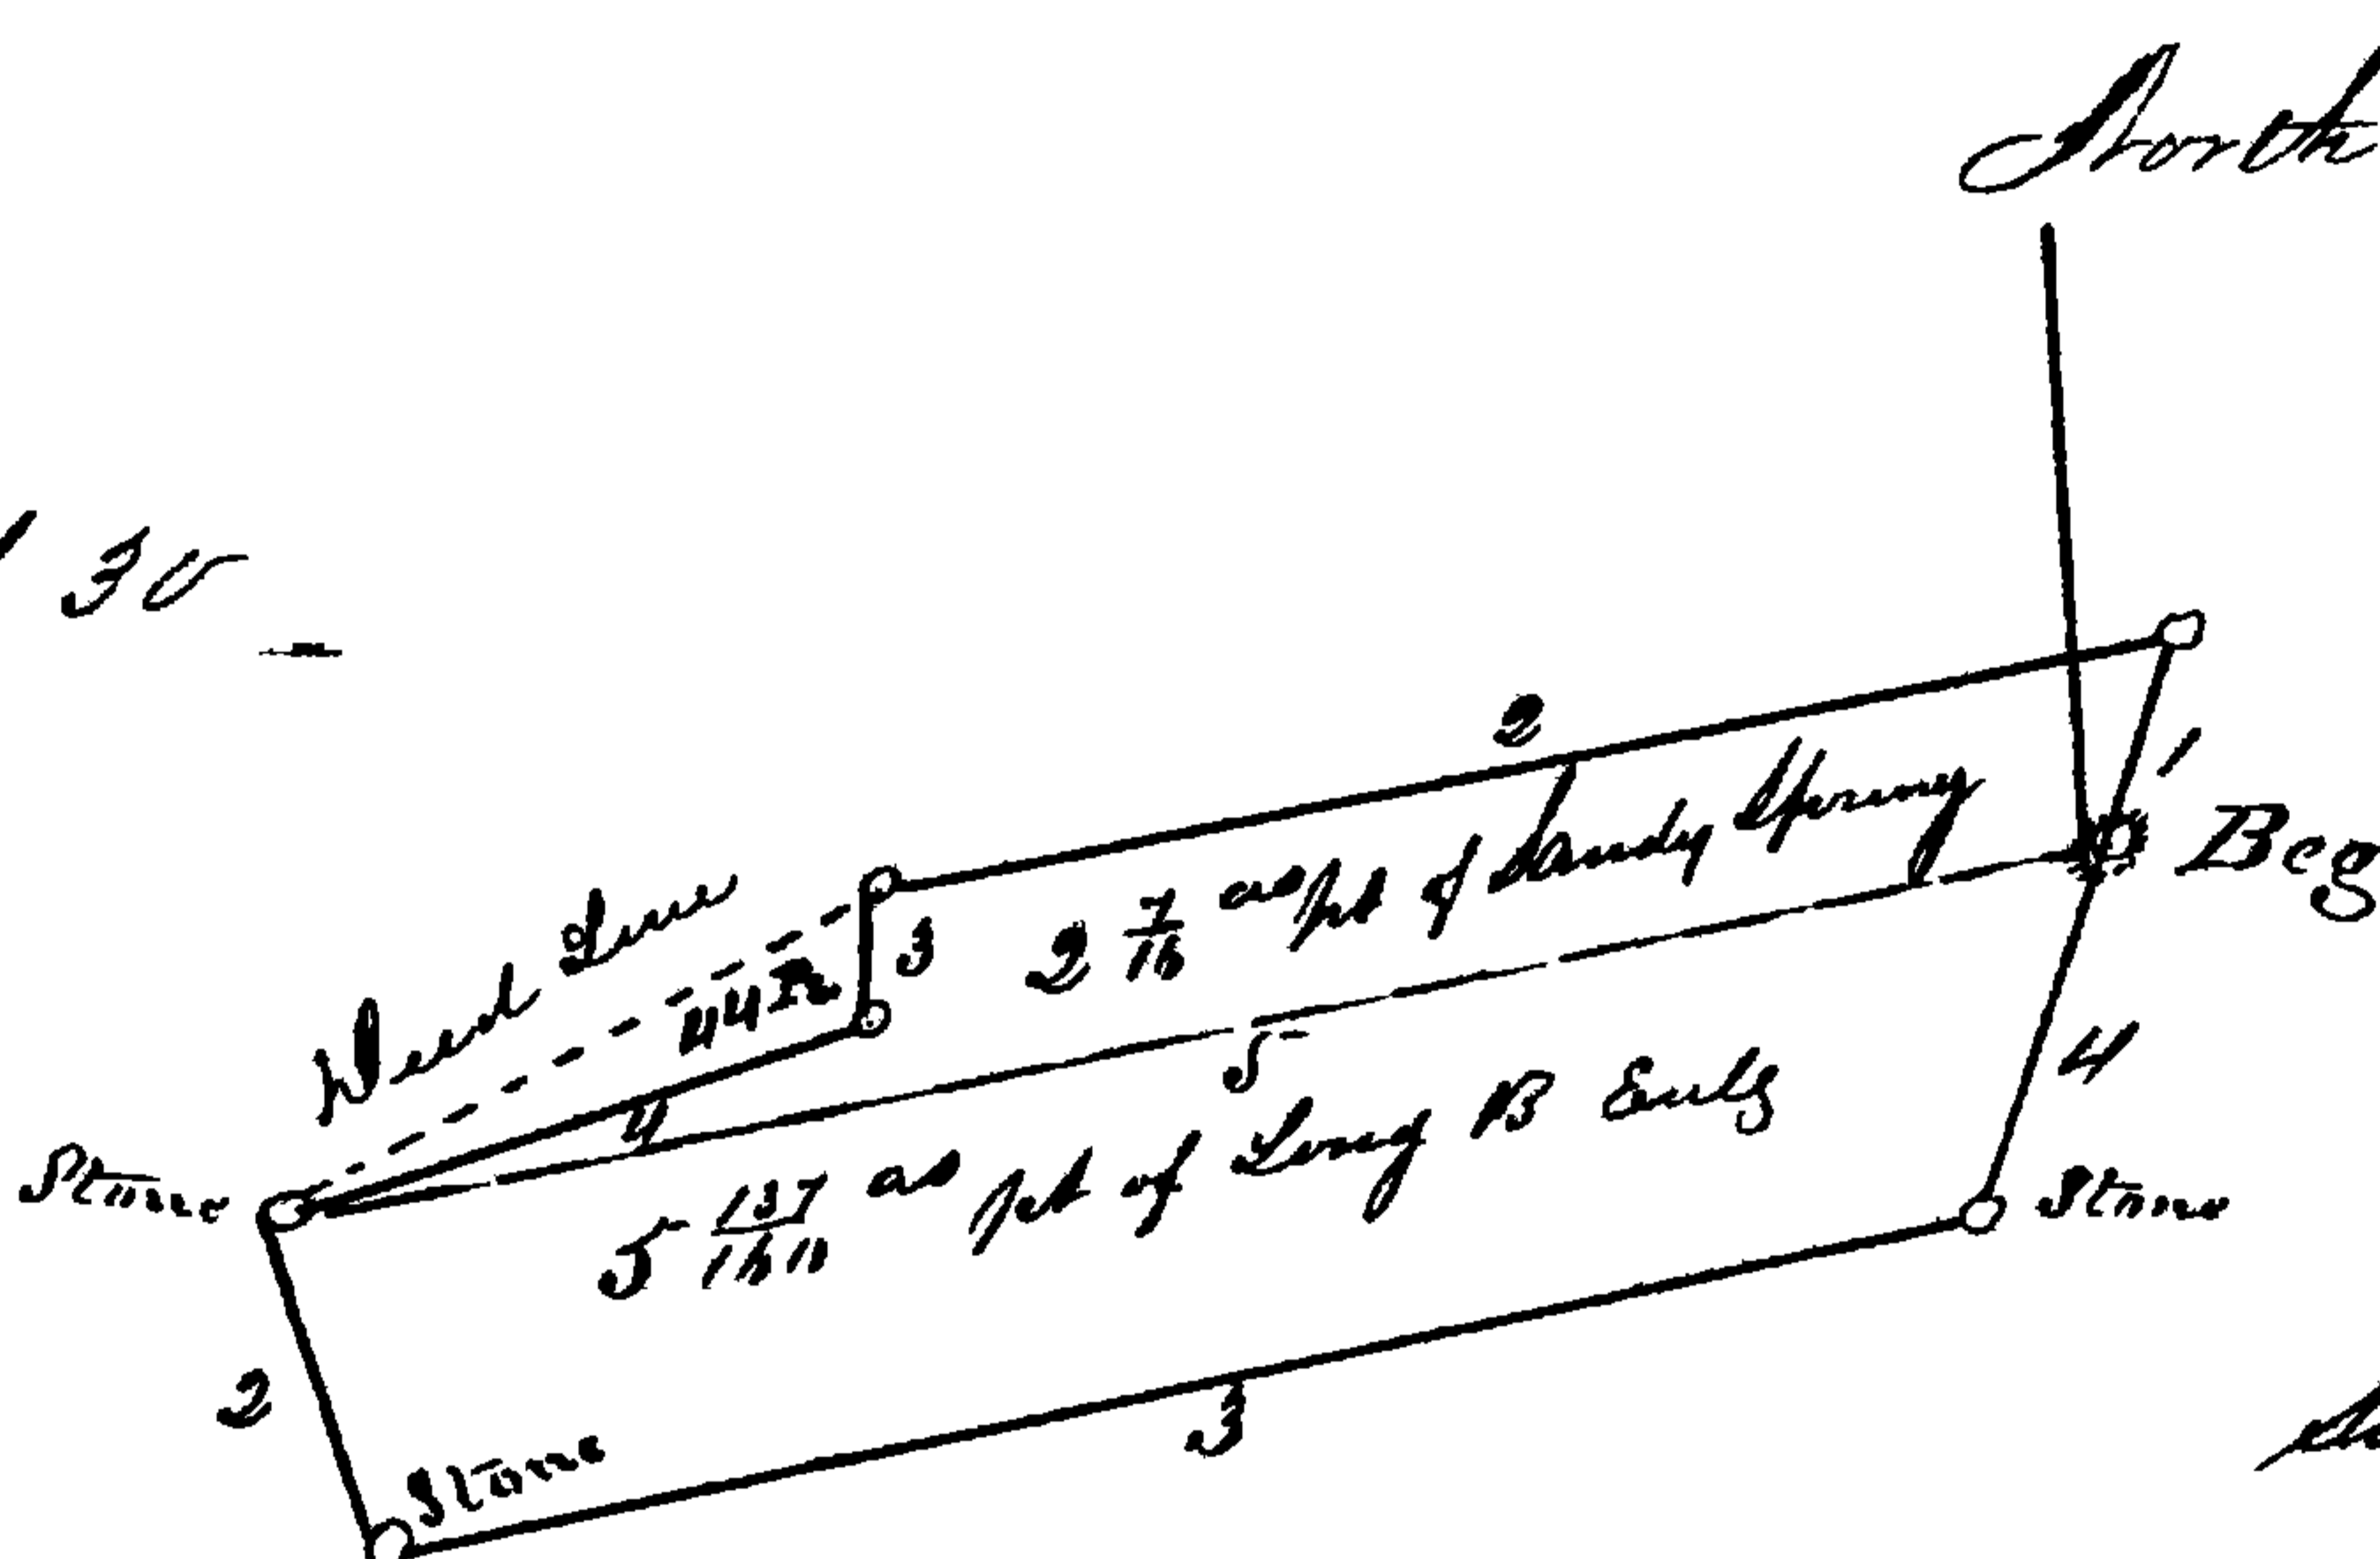 North
30
2
1
Beg
Deed Line
3
2 7/16 as pt of Sandy Spring
5
4
4
Stone
5 137/160 as pt of Long B
Stone
2
Stone
3